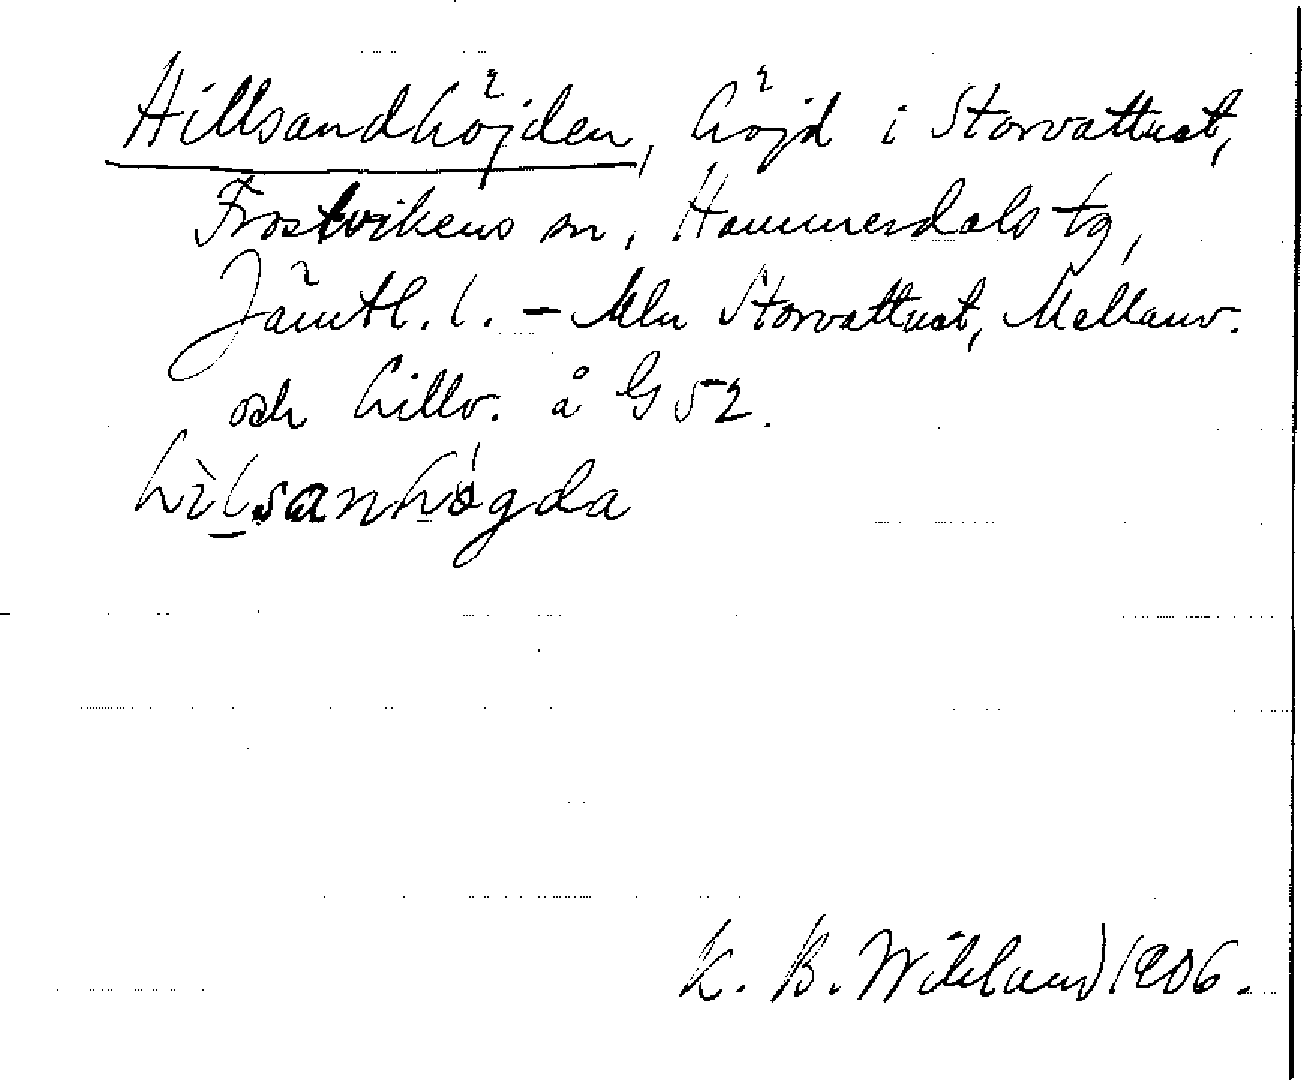 Hillsandhöjden, höjd i Storvattnet,
Frostvikens sn, Hammerdals tg,
Jämtl. l. – Mln Storvattnet, Mellanv.
och Lillv. å G 52.
hìlsanhǿgda
K. B. Wiklund 1906.